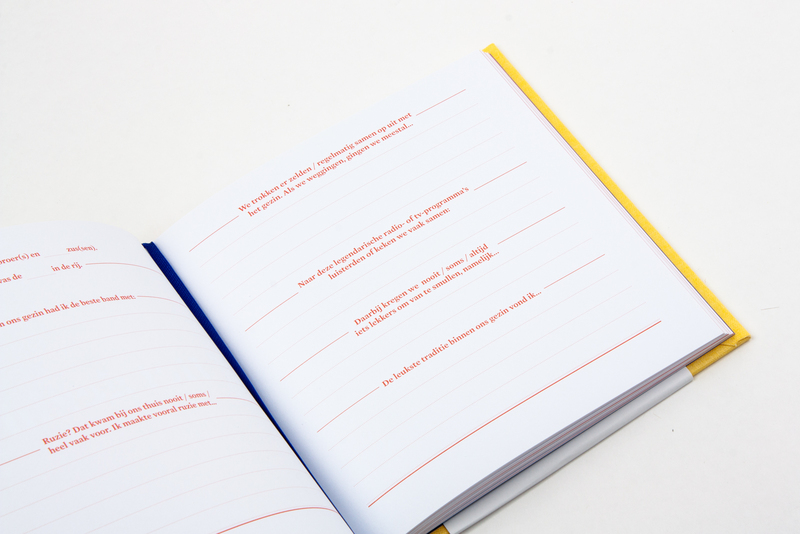 broer(s) en zus(sen).
was de in de rij.
n ons gezin had ik de beste band met:
Ruzie? Dat kwam bij ons thuis nooit / soms /
heel vaak voor. Ik maakte vooral ruzie met...
We trokken er zelden / regelmatig samen op uit met
het gezin. Als we weggingen, gingen we meestal...
Naar deze legendarische radio- of tv-programma's
luisterden of keken we vaak samen:
Daarbij kregen we nooit / soms / altijd
iets lekkers om van te smullen, namelijk...
De leukste traditie binnen ons gezin vond ik...